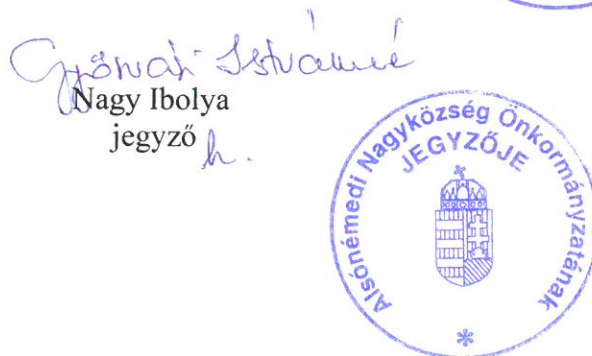 Győrvári Istvánné
Nagy Ibolya
jegyző h.
Alsónémedi Nagyközség Önkormányzatának
JEGYZŐJE
*